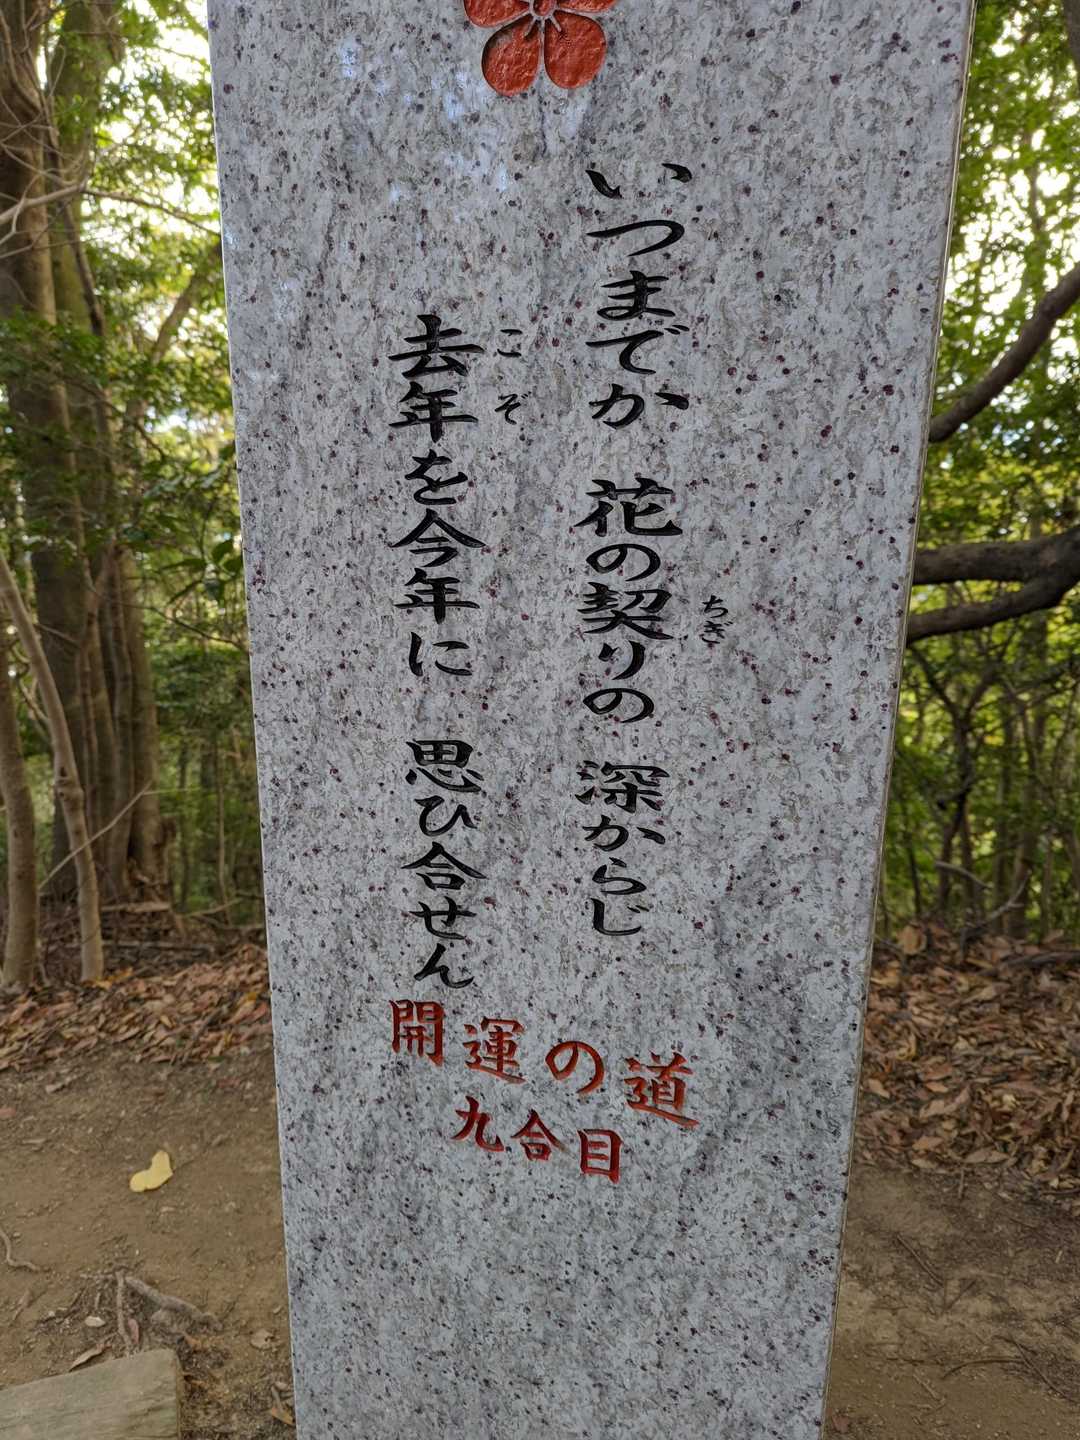 いつまでか 花の契りの 深からじ
ちぎ
去年を今年に 思ひ合せん
こぞ
開運の道
九合目